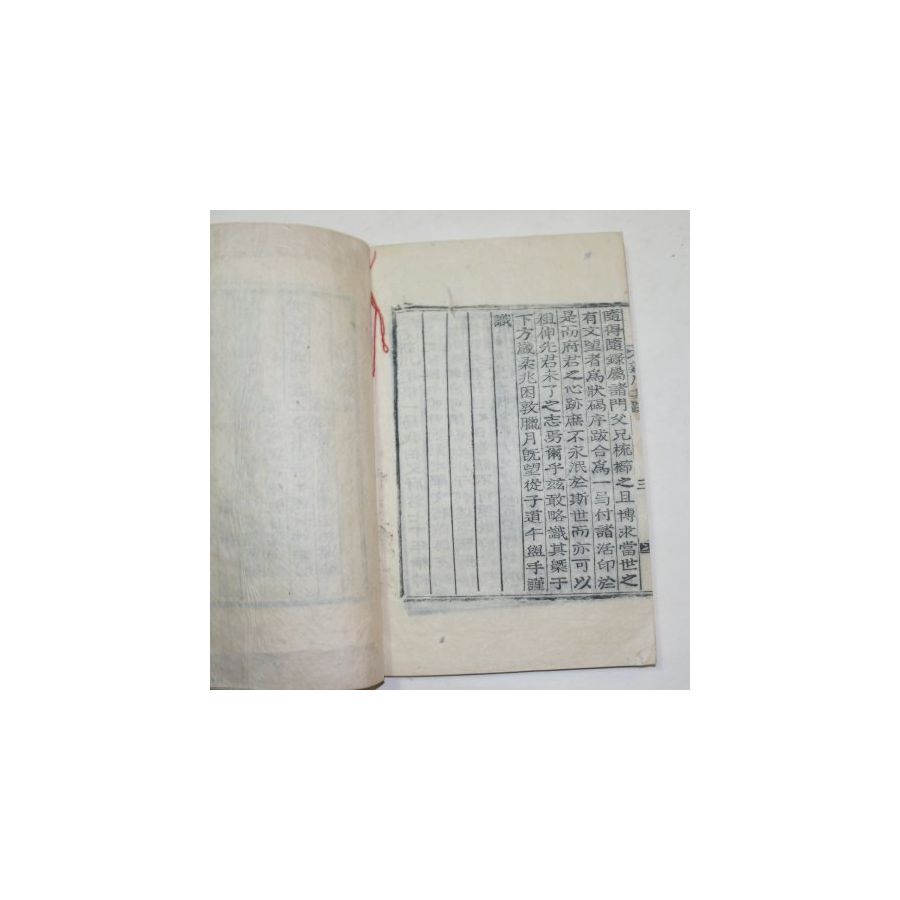 隨得隨錄屬諸門父兄梳櫛之且博求當世之
有文望者爲狀碣序跋合爲一弓付諸活印於
是而府君之心跡庶不永泯於斯世而亦可以
粗伸先君未了之志焉爾乎玆敢略識其槩于
下方歲柔兆困敦臘月旣望從子道午盥手謹
識
三